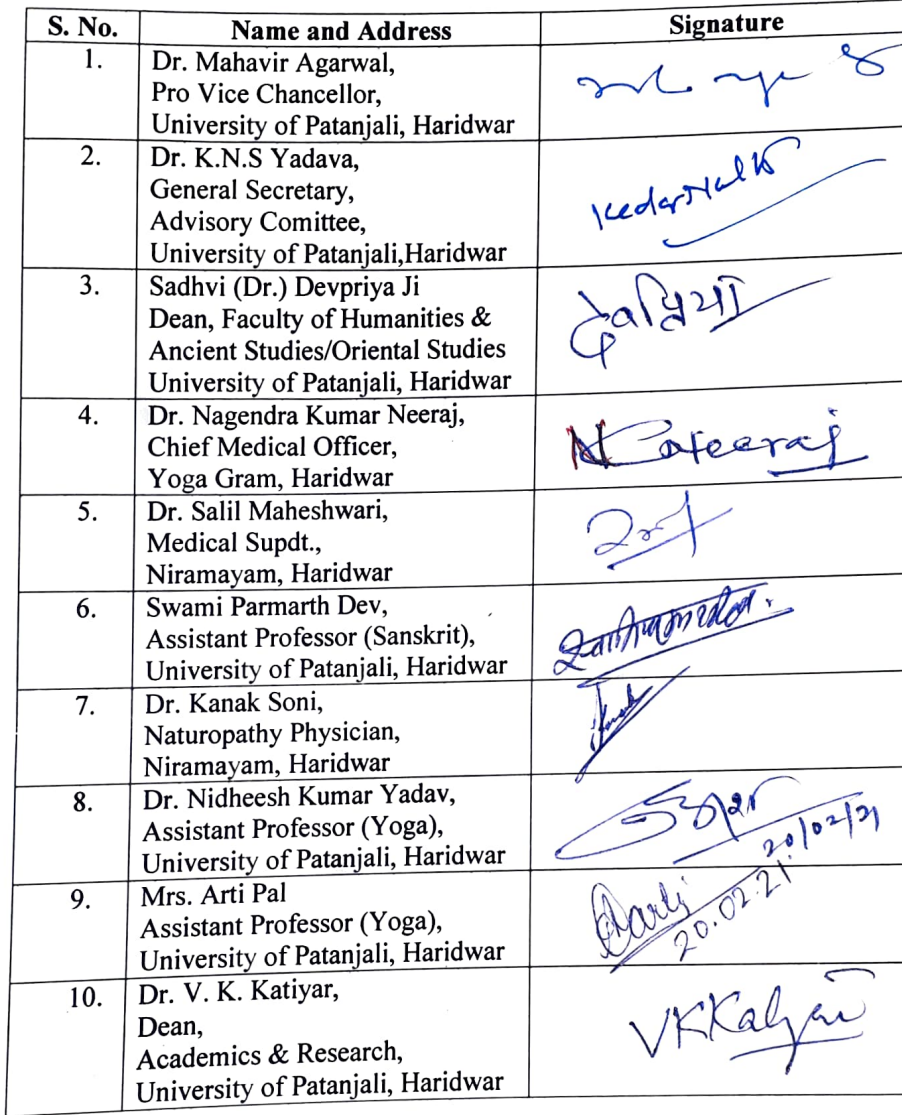 S. No. Name and Address Signature
1. Dr. Mahavir Agarwal,
Pro Vice Chancellor,
University of Patanjali, Haridwar
2. Dr. K.N.S Yadava,
General Secretary,
Advisory Comittee,
University of Patanjali,Haridwar
3. Sadhvi (Dr.) Devpriya Ji
Dean, Faculty of Humanities &
Ancient Studies/Oriental Studies
University of Patanjali, Haridwar
4. Dr. Nagendra Kumar Neeraj,
Chief Medical Officer,
Yoga Gram, Haridwar
5. Dr. Salil Maheshwari,
Medical Supdt.,
Niramayam, Haridwar
6. Swami Parmarth Dev,
Assistant Professor (Sanskrit),
University of Patanjali, Haridwar
7. Dr. Kanak Soni,
Naturopathy Physician,
Niramayam, Haridwar
8. Dr. Nidheesh Kumar Yadav,
Assistant Professor (Yoga),
University of Patanjali, Haridwar
20/02/21
9. Mrs. Arti Pal
Assistant Professor (Yoga),
University of Patanjali, Haridwar
20.02.21
10. Dr. V. K. Katiyar,
Dean,
Academics & Research,
University of Patanjali, Haridwar